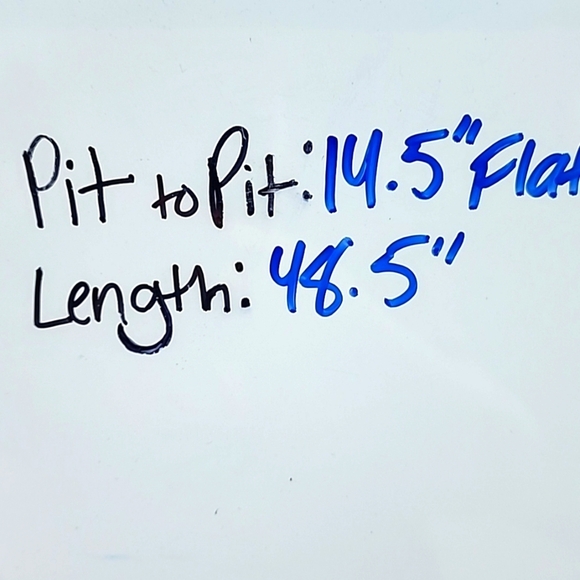 Pit to Pit: 14.5" Flat
Length: 48.5"